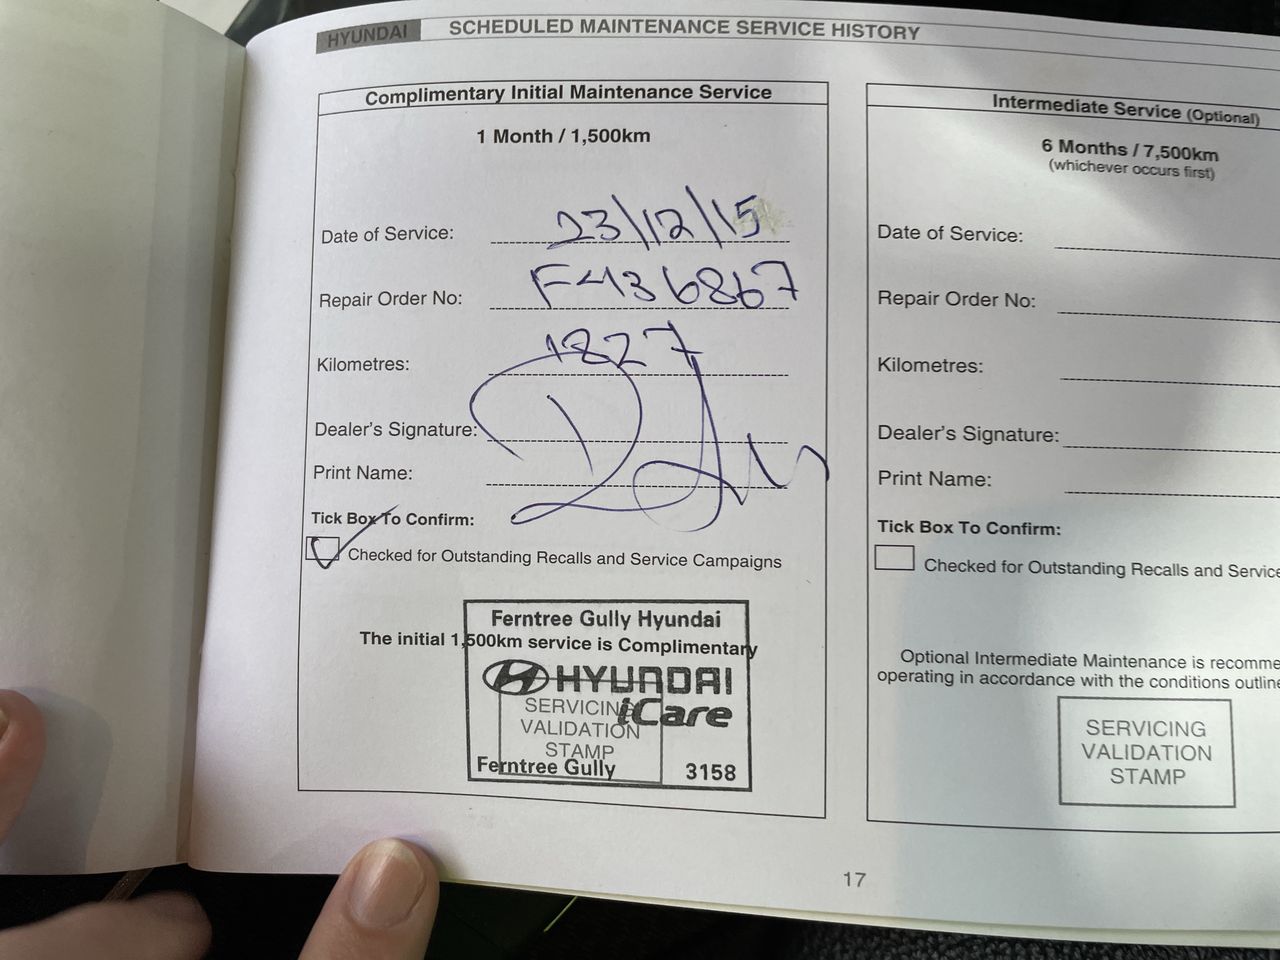 HYUNDAI SCHEDULED MAINTENANCE SERVICE HISTORY
Complimentary Initial Maintenance Service
1 Month / 1,500km
Date of Service: 23/12/15
Repair Order No: F436867
Kilometres: 1827
Dealer's Signature:
Print Name:
Tick Box To Confirm:
Checked for Outstanding Recalls and Service Campaigns
Ferntree Gully Hyundai
The initial 1,500km service is Complimentary
HYUNDAI
iCare
SERVICING
VALIDATION
STAMP
Ferntree Gully 3158
Intermediate Service (Optional)
6 Months / 7,500km
(whichever occurs first)
Date of Service:
Repair Order No:
Kilometres:
Dealer's Signature:
Print Name:
Tick Box To Confirm:
Checked for Outstanding Recalls and Service
Optional Intermediate Maintenance is recomme
operating in accordance with the conditions outline
SERVICING
VALIDATION
STAMP
17